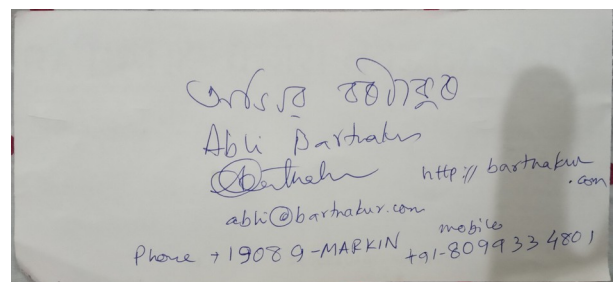 Abhi Barthakur
Barthakur
http://barthakur.com
abhi@barthakur.com
mobile
Phone +19089-MARKIN +91-8099334801